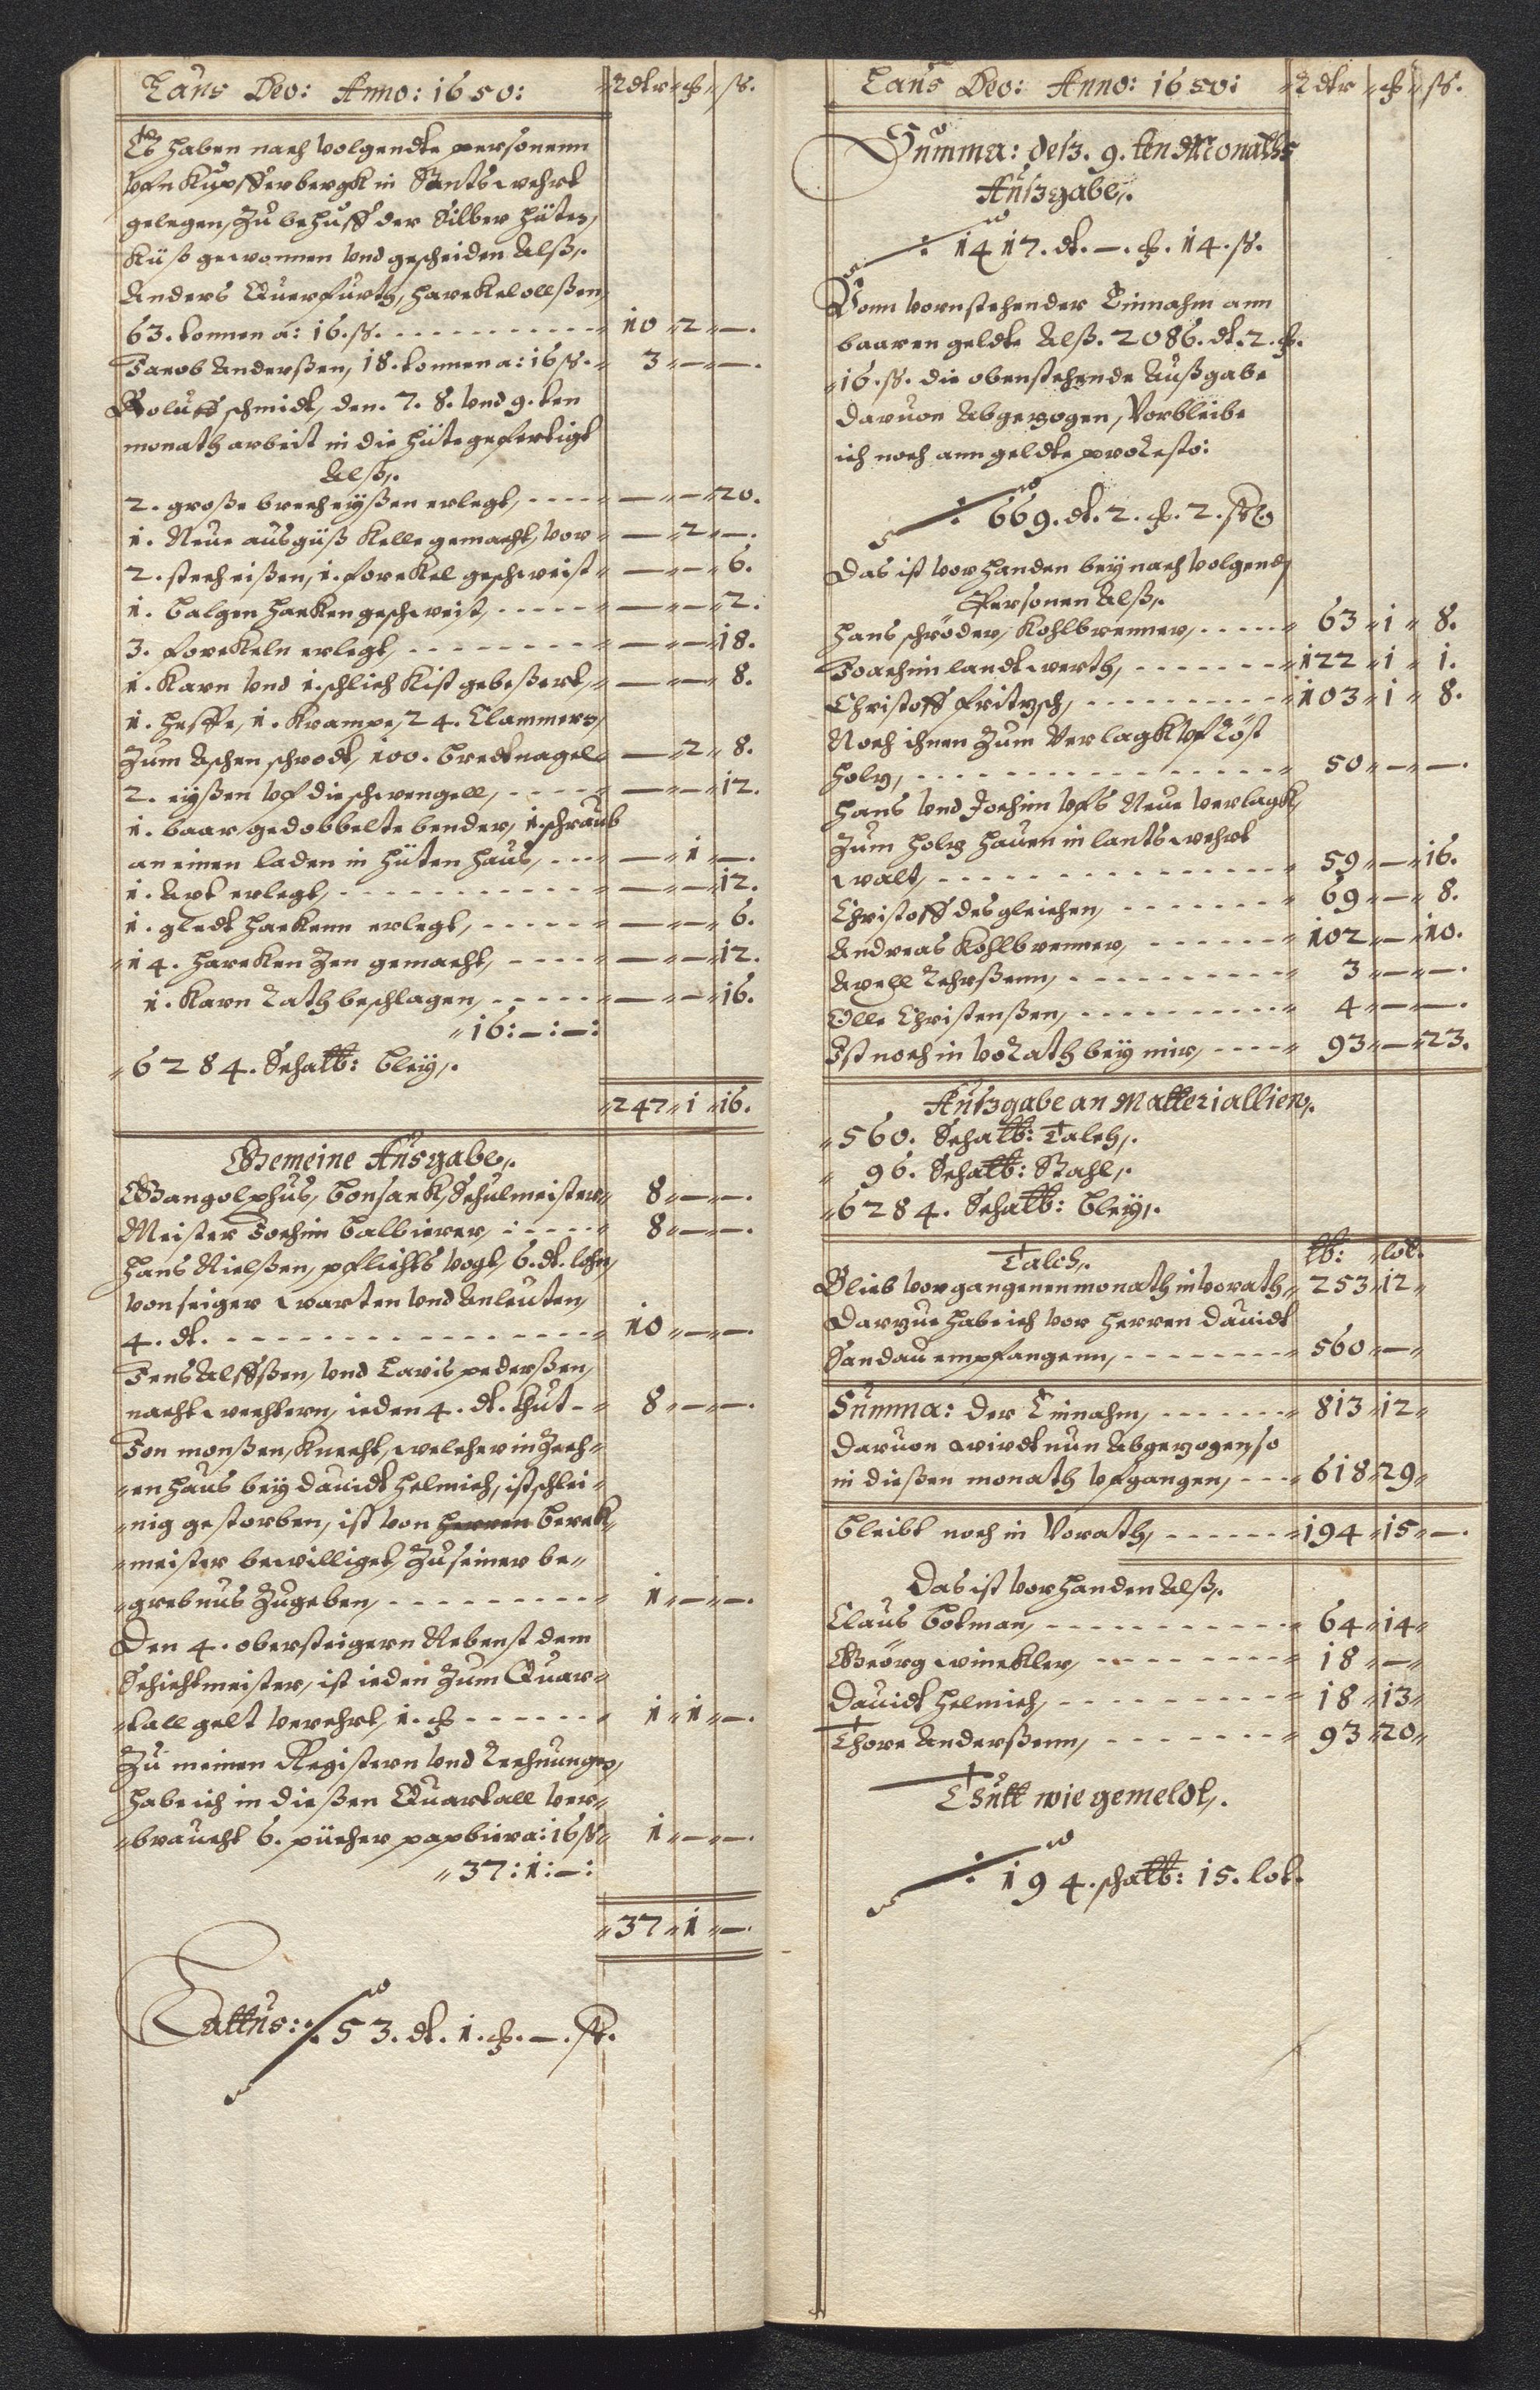 Laus Deo: Anno: 1650: Rdtr ȹ ß.
Es haben nach volgendte personenn
vfn Kupfferbergk in Sants wehrt
gelegen, Zu behuff der Silber hüten,
Küß gewonnen vnd gescheiden Alß,.
Anders Querfurtz, Harekel ollßen,
63. tonnen a: 16. ß. - - - 10 2 —.
Jacob Anderßen, 18. tonnen a: 16 ß. 3 — —.
Roluff schmidt, den. 7. 8. vnd 9. ten
monath arbeit in die hüte gefertigt
Alß,.
2. große brecheyßen erlegt, - - - — — 20.
1. Neue ausgüß Kelle gemacht, vor — 2 —.
2. stech eißen, 1. forckel geschweist — — 6.
1. balgen hacken geschweist, - - - — — 2.
3. forckeln erlegt, - - - — — 18.
1. Karn vnd 1. schlich Kist gebeßert, — — 8.
1. heffe, 1. Krampe, 24. Clammern,
Zum Aschen schrodt, 100. bredtnagel — 2 8.
2. eyßen vf die schwengell, - - - — — 12.
1. baar gedobbelte bender, 1. schraub
an einen laden in hüten haus, - - - — 1 —.
1. Axt erlegt, - - - — — 12.
1. gledt hackenn erlegt, - - - — — 6.
14. harcken Zen gemacht, - - - — — 12.
1. Karn Rath beschlagen, - - - — — 16.
16: —: —:
6284. Schalb: bley,.
247 1 16.
Gemeine Ausgabe,.
Gangolphus, bonsack, Schulmeister 8 — —.
Meister Jochim balbierer, - - - 8 — —.
Hans Nielßen, pflichts vogt, 6. dt. lohn,
von seiger warten vnd Anleuten,
4. dt. - - - 10 — —.
Jens Alffßen, vnd Lavis pederßen,
nacht wechtern, ieden 4. dt. thut - 8 — —.
Jon monßen, Knecht, welcher in Zech-
en haus bey dauidt helmich, ist schlei-
nig gestorben, ist von herren berck-
meister bewilliget, Zu seiner be-
grebnus Zugeben, - - - 1 — —.
Den 4. obersteigern Nebenst dem
Schichtmeister, ist ieden Zum Quar-
tall gelt verehrt, 1. ȹ - - - 1 1 —.
Zu meinen Registern vnd Rechnungen,
habe ich in dießen Quartall ver-
braucht 6. pücher papbier a: 16 ß 1 — —.
37: 1: —:
37 1 —.
Lattus: 53. dt. 1. ȹ. —. ß.
Laus Deo: Anno: 1650: Rdtr ȹ ß.
Summa: deß. 9. ten Monaths
Außgabe,.
1417. dt. —. ȹ. 14. ß.
Vonn vornstehender Einnahm ann
baaren geldte Alß. 2086. dt. 2. ȹ.
16. ß. die obenstehende Außgabe
daruon Abgezogen, Vorbleibe
ich noch ann geldte pro Resto:
669. dt. 2. ȹ. 2. ß
Das ist vorhanden bey nach volgend,
Personen Alß,.
Hans schröder, Kohlbrenner, - - - 63 1 8.
Joachim landtwerth, - - - 122 1 1.
Christoff fritzsch, - - - 103 1 8.
Noch ihnen Zum Verlagk vf Röst
holz, - - - 50 — —.
Hans vnd Jochim vfs Neue verlagk,
Zum holz hauen in lants wehrt
walt, - - - 59 — 16.
Christoff desgleichen, - - - 69 — 8.
Andreas Kohlbrenner, - - - 102 — 10.
Axell Rehrßenn, - - - 3 — —.
Olle Christenßen, - - - 4 — —.
Ist noch in voRath bey mir, - - - 93 — 23.
Außgabe an Matteriallien,.
560. Schalb: Talch,.
96. Schalb: Stahl,.
6284. Schalb: bley,.
Talch,. lb: lot.
Blieb vorgangenen monath in vorath, 253 12
Darzue habe ich vor herren dauidt
Sandau empfangenn, - - - 560 —
Summa: der Einnahm, - - - 813 12
daruon wirdt nun Abgezogen, so
in dießen monath vfgangen, - - - 618 29
bleibt noch in Vorath, - - - 194 15 —.
Das ist vorhanden Alß,.
Claus botman, - - - 64 14
Geörg winckler, - - - 18 —
dauidt helmich, - - - 18 13
Thore Anderßenn, - - - 93 20
Thutt wie gemeldt,.
194. schalb: 15. lot.